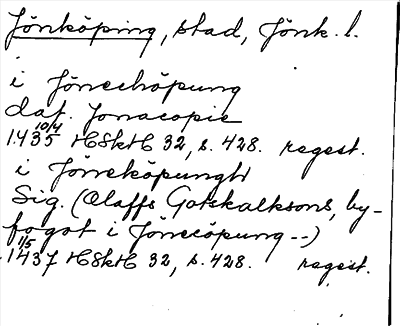 Jönköping, stad, Jönk. l.
i Jönecköpung
daf. Jonacopie
1435 10/4 HSkH 32, s. 428. regest.
i Jöneköpungh
Sig. (Olaffs Gotskalksons, by-
fogot i Jönecöpung --)
1437 1/5 HSkH 32, s. 428. regest.